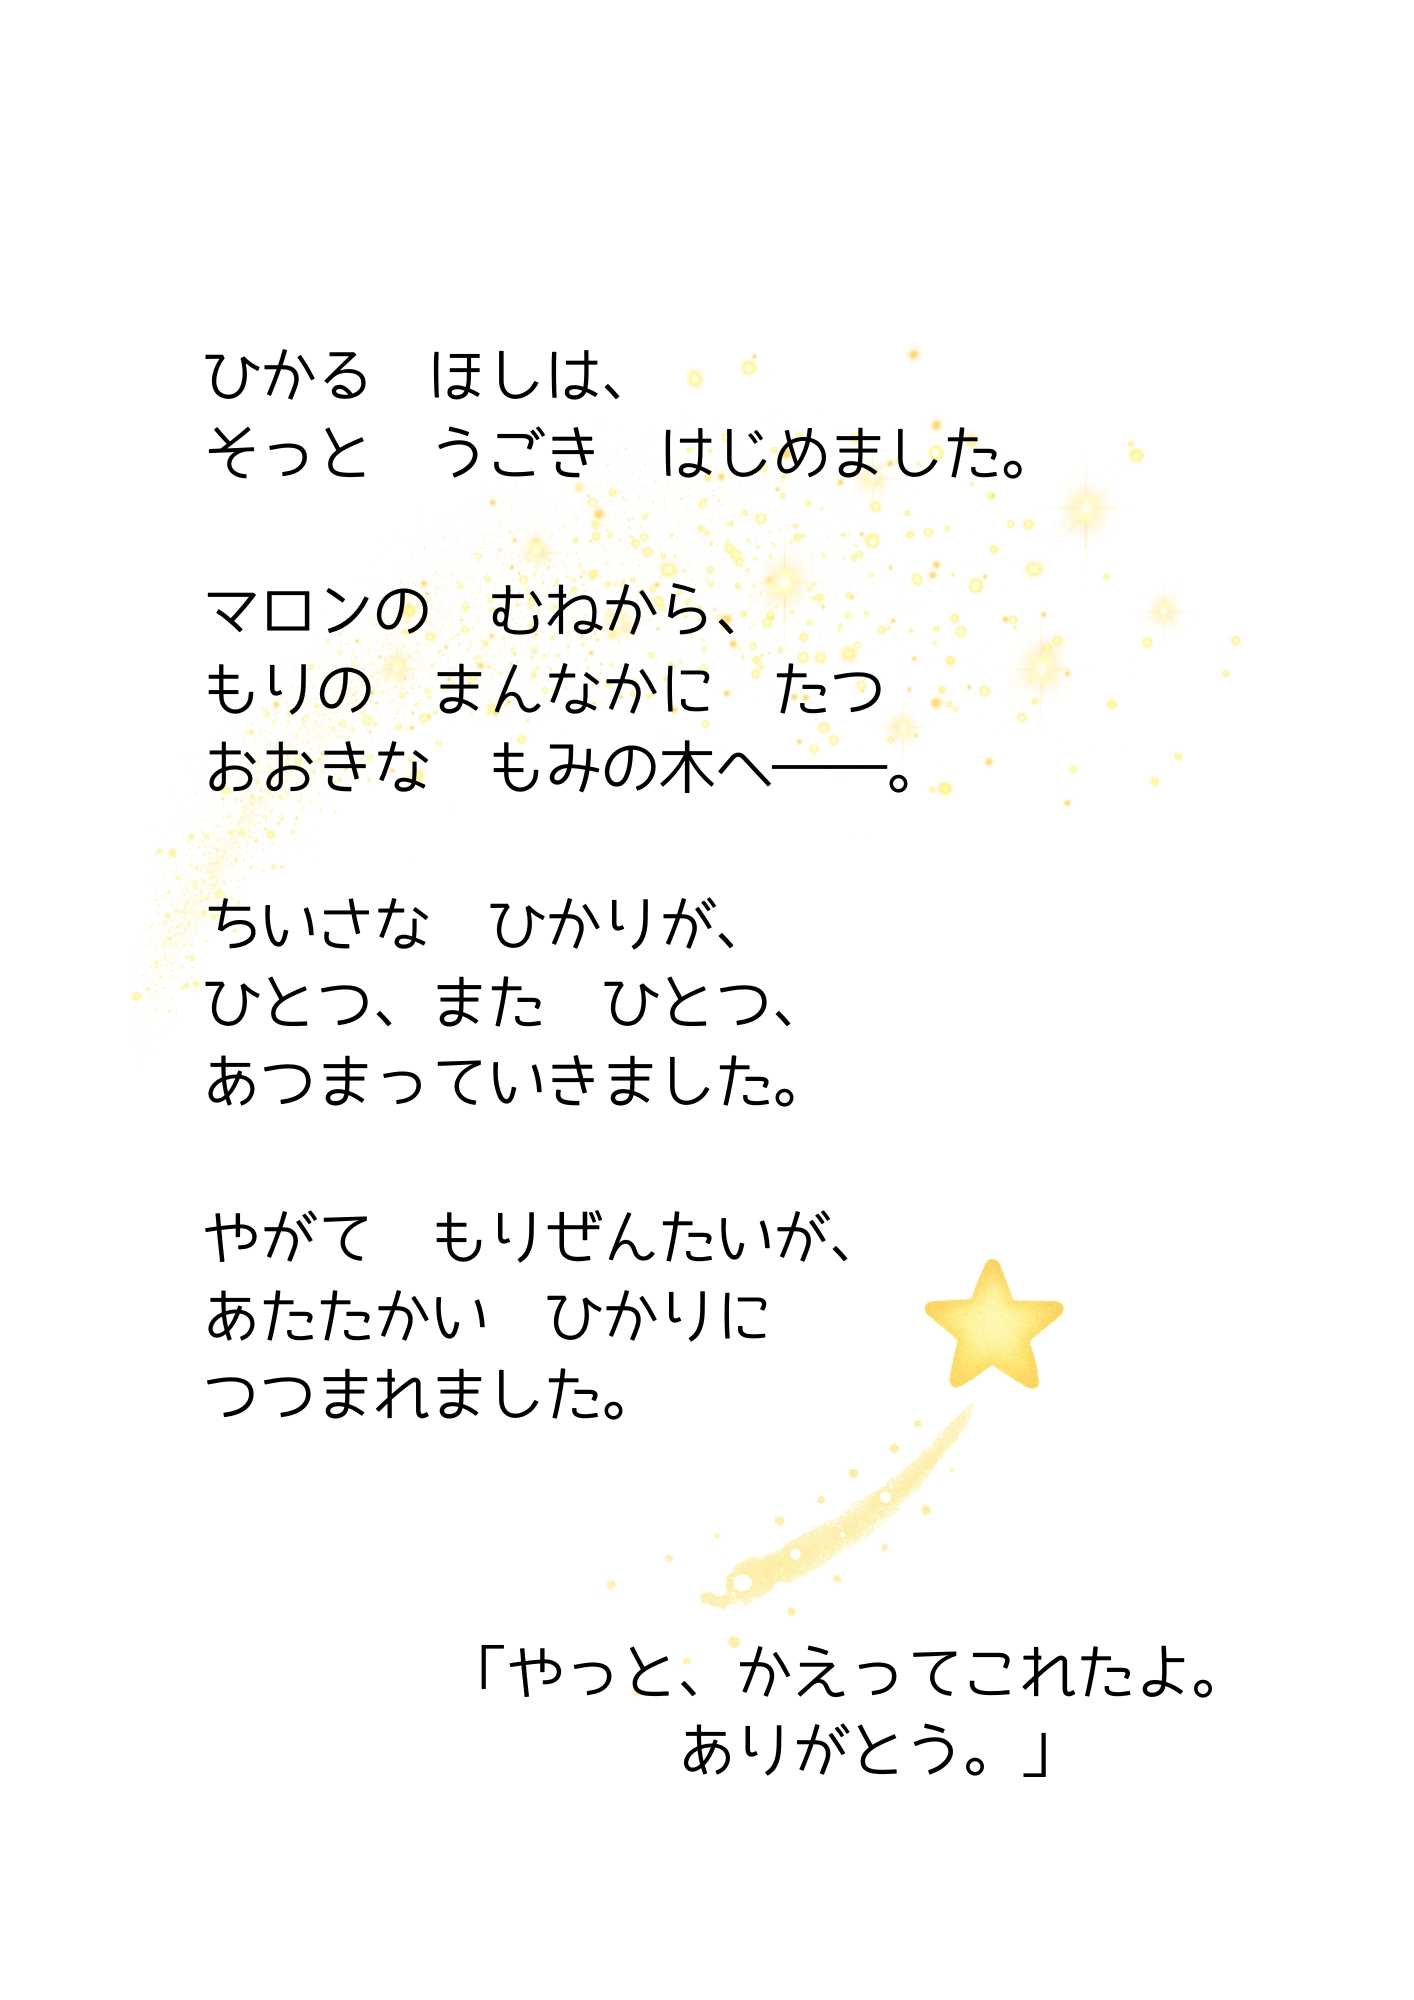 ひかる　ほしは、
そっと　うごき　はじめました。
マロンの　むねから、
もりの　まんなかに　たつ
おおきな　もみの木へ――。
ちいさな　ひかりが、
ひとつ、また　ひとつ、
あつまっていきました。
やがて　もりぜんたいが、
あたたかい　ひかりに
つつまれました。
「やっと、かえってこれたよ。
ありがとう。」